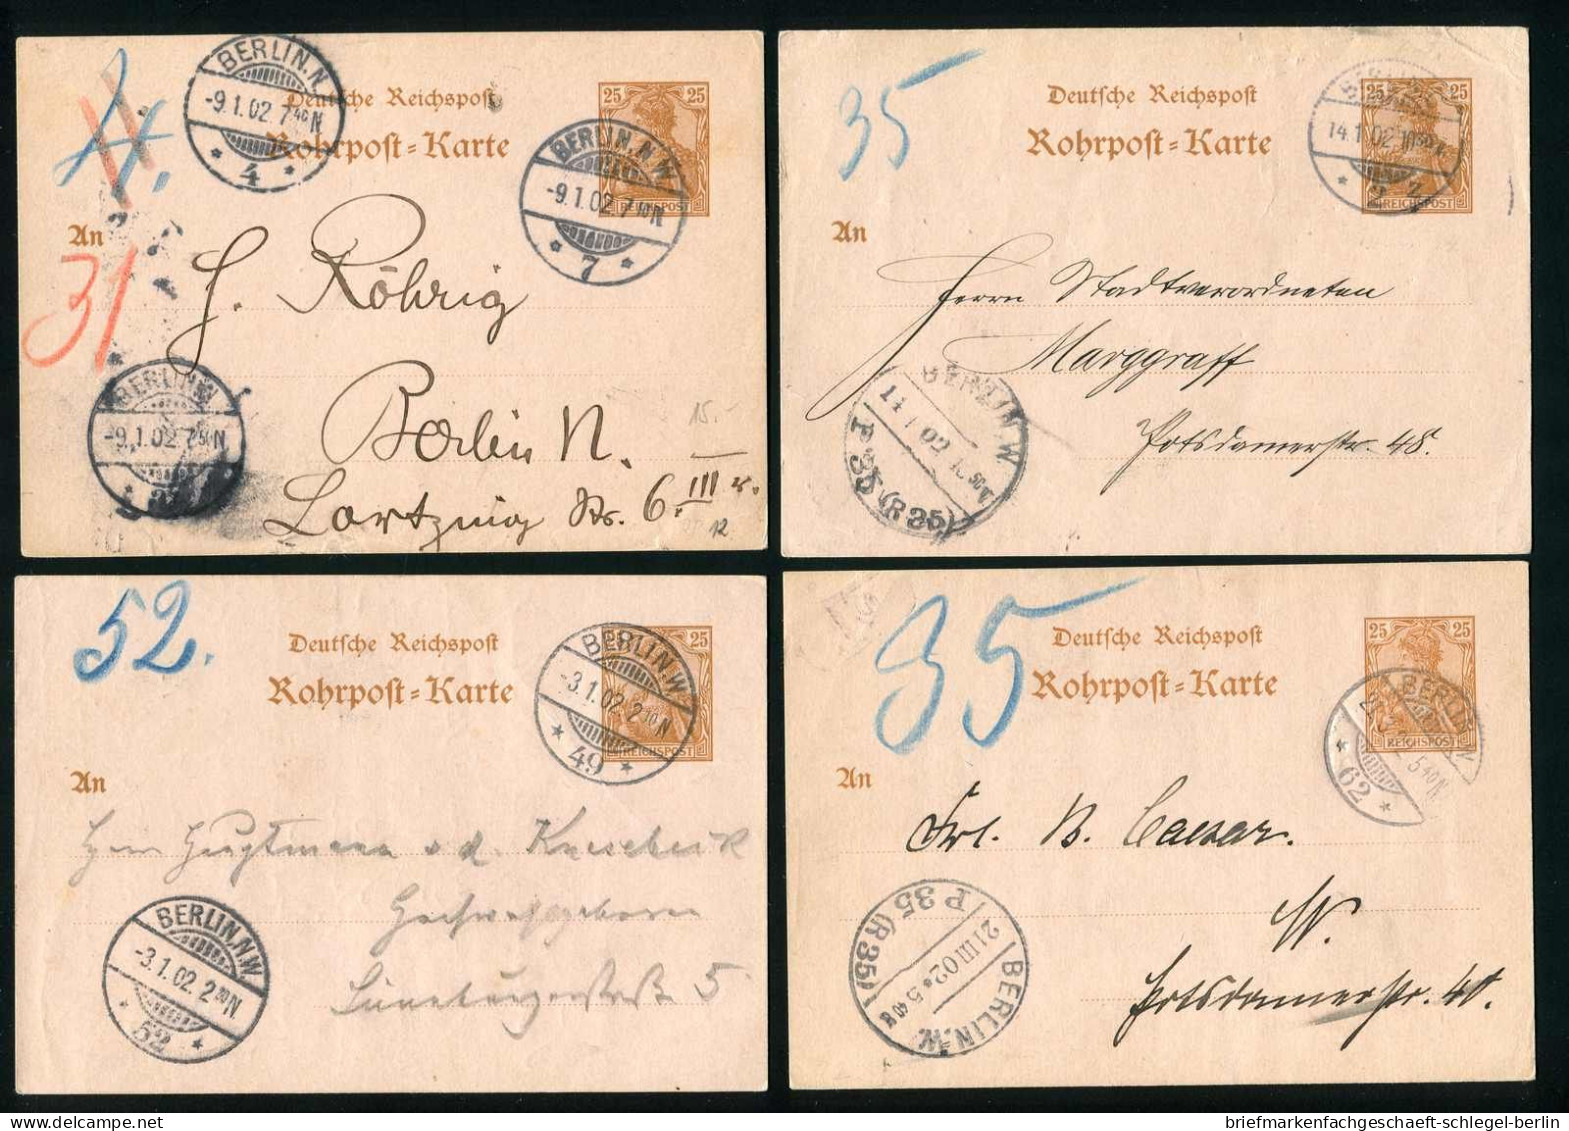 4.
31
BERLIN.N.
-9.1.02 7 40 N
* 4 *
Deutsche Reichspost
Rohrpost-Karte
25 25
REICHSPOST
BERLIN.N.W
-9.1.02.7 10 N
* 7 *
An
H. Röhrig
Berlin N.
Lortzing Str. 6. III r.
15.-
BERLIN.W.
-9.1.02 7 50 N
35
Deutsche Reichspost
Rohrpost-Karte
25 25
REICHSPOST
14.1.02.10 50 V.
An
Herrn Stadtverordneten
Marggraff
Potsdamerstr. 48.
BERLIN.W
P 35 (R 35)
52.
Deutsche Reichspost
Rohrpost-Karte
25
REICHSPOST
BERLIN.W
-3.1.02.2 10 N
* 49 *
An
Herrn Hauptmann v. d. Knesebeck
Hochwohlgeboren
Lüneburgerstraße 5
BERLIN.N.W.
-3.1.02.2 20 N
* 52 *
35
Deutsche Reichspost
Rohrpost-Karte
25 25
REICHSPOST
BERLIN.W
5 40 N
* 62 *
An
Frl. B. Caesar.
W.
Potsdamerstr. 40.
BERLIN.W.
21 III 02 * 5 40 N
P 35 (R 35)
briefmarkenfachgeschaeft-schlegel-berlin